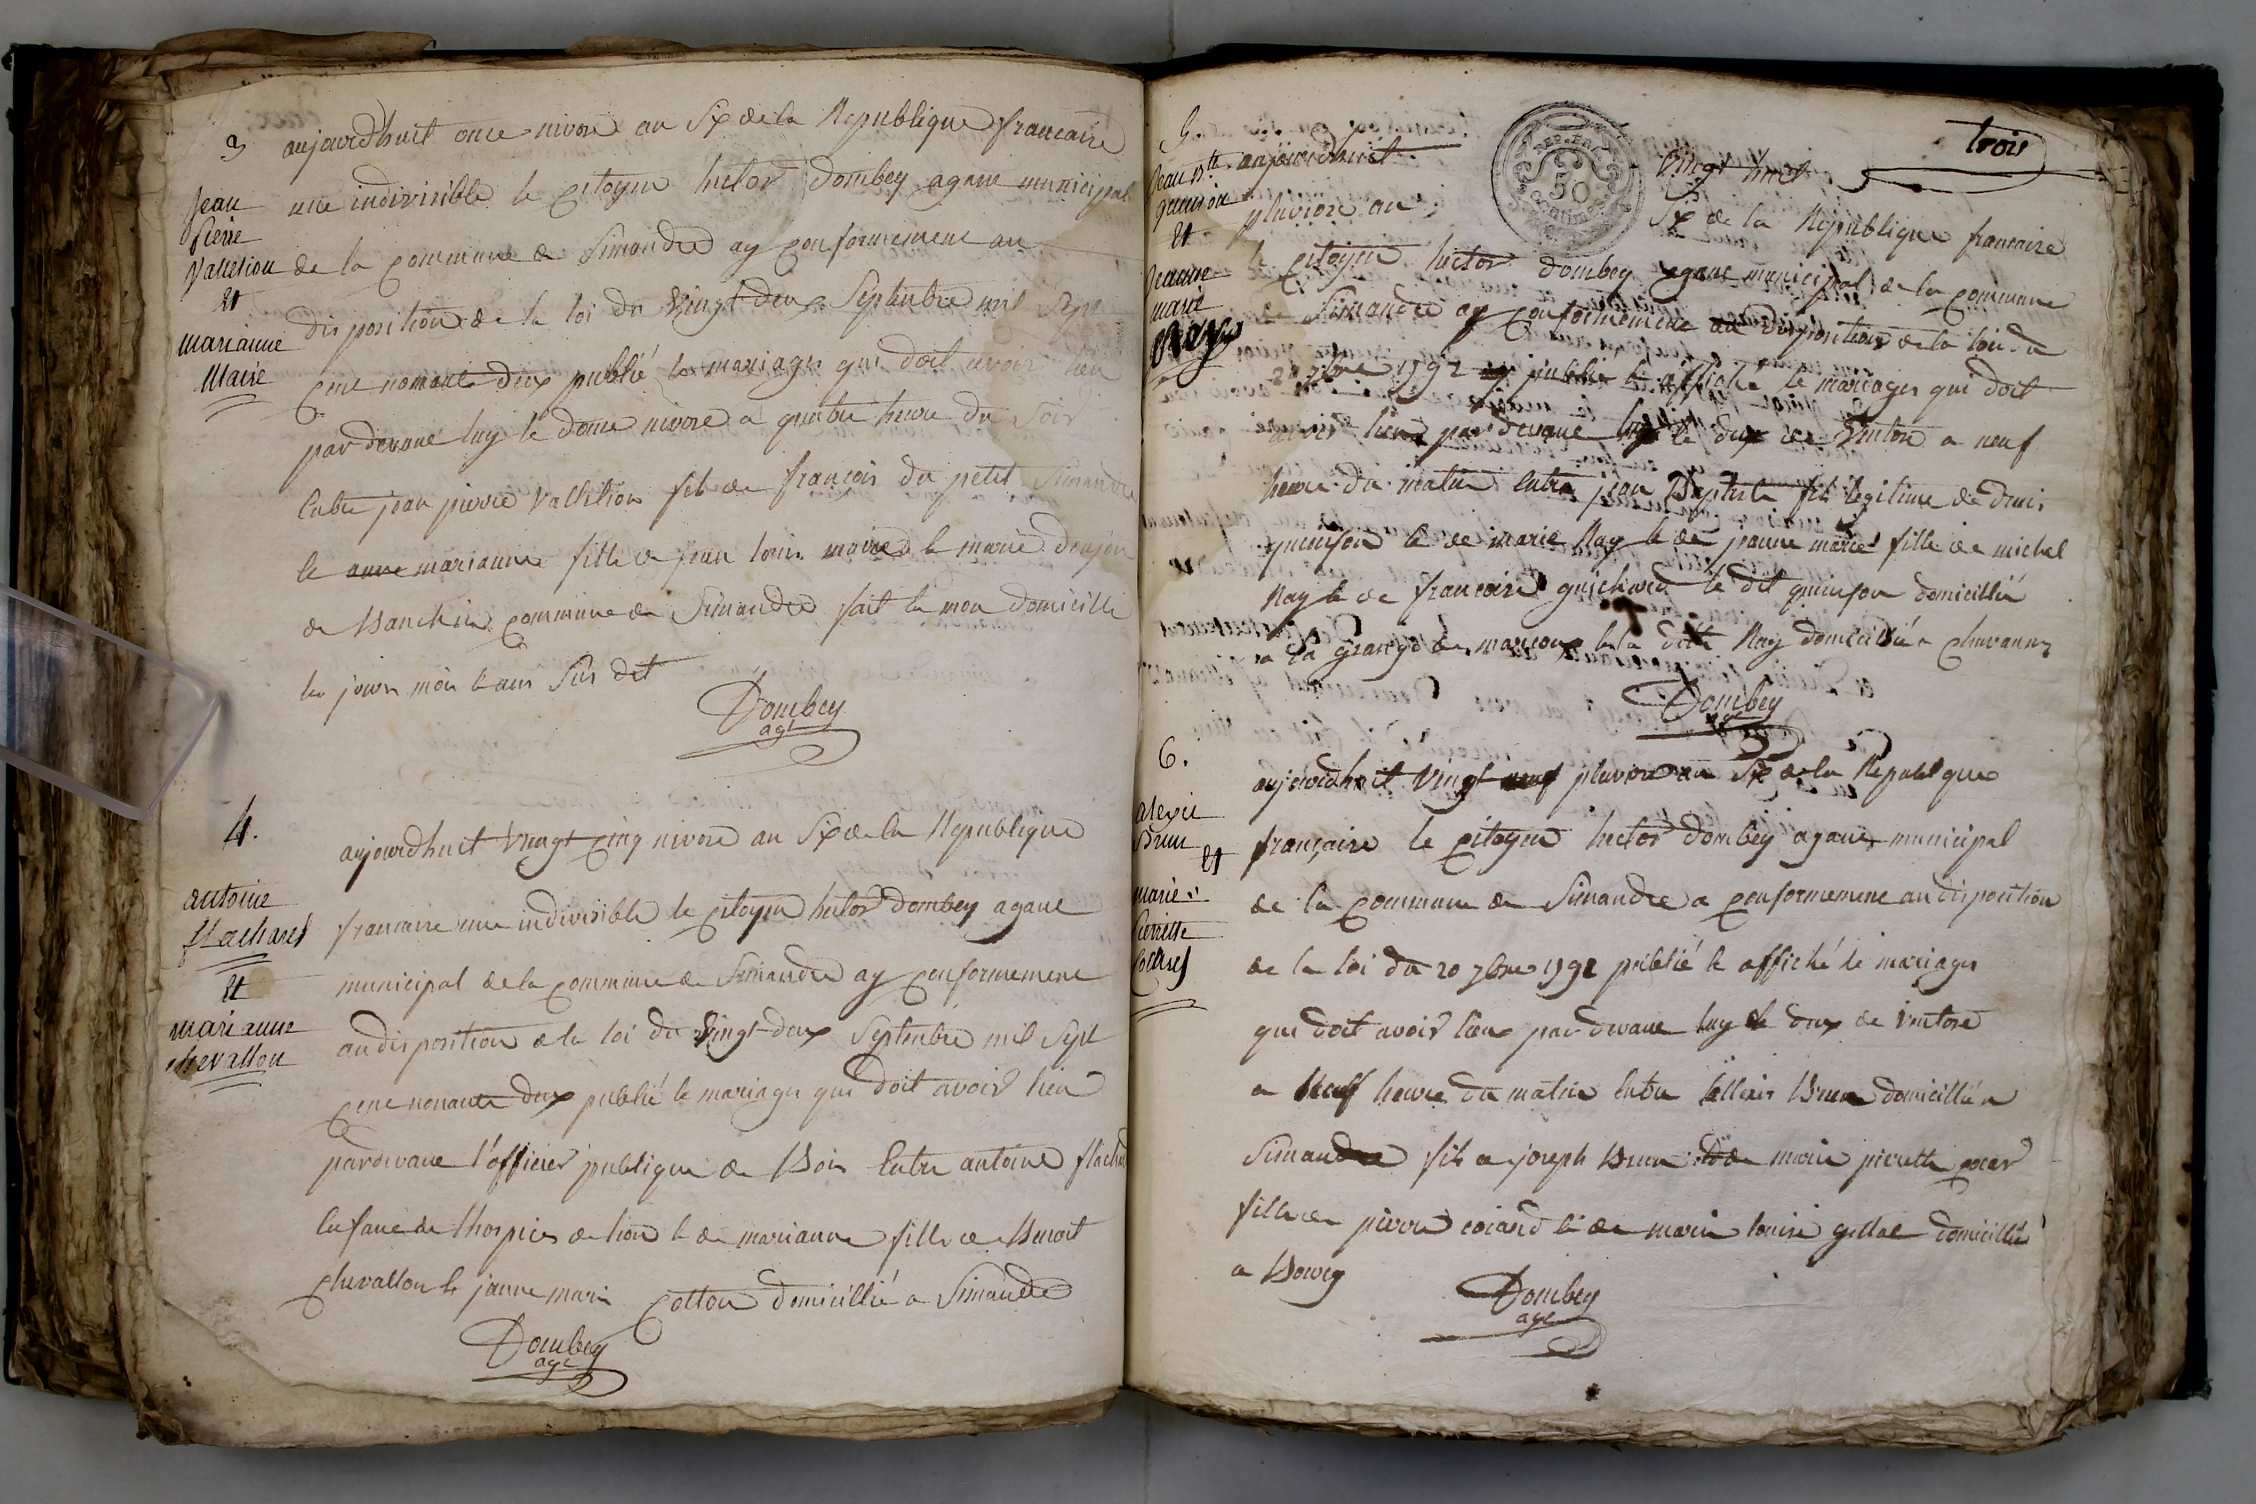 3
Jean
Pierre
Valletion
et
marianne
Maire
aujourdhuit onze nivose an Six de la Republique francaise
une indivisible le citoyen hector dombey agant municipal
de la commune de Simandre ay conformement au
disposition de la loi du vingt deux Septembre mil Sept
cent nonante deux publié le mariages qui doit avoir lieu
pardevant luy le douze nivose a quatre heure du soir
Entre jean pierre Valletion fils de françois du petit Simandre
le anne marianne fille de jean louis maire & le marie donjon
de Banchin commune de Simandre fait en mon domicille
les jours mois & ans Sus dit
Dombey
agt
4.
antoine
flachard
et
marianne
chevallon
aujourdhuit vingt cinq nivose an Six de la Republique
francaise une indivisible le citoyen hector dombey agant
municipal de la commune de Simandre ay conformement
au disposition de la loi du vingt deux Septembre mil Sept
cent nonante deux publié le mariages qui doit avoir lieu
pardevant l'officier publique de Bois Entre antoine flachard
Enfant de lhospice de lion & de marianne fille de Benoit
chevallon & janne marie cotton domicillié a Simandre
Dombey
agt
trois
REP. FRA.
50
centimes
5.
Jean Bte
quinson
et
Jeanne
marie
Ray
aujourdhuit vingt huit
pluviose an Six de la Republique francaise
le citoyen hector dombey agant municipal de la commune
de Simandre ay conformement au disposition de la loi du
20 7bre 1792 ay publié & affiché le mariages qui doit
avoir lieu par devant luy le deux de ventose a neuf
heure du matin Entre jean Baptiste fils legitime de denis
quinson & de marie Ray & de jeanne marie fille de michel
Ray & de francoise guichard le dit quinson domicillié
a la grange des marcoux & la ditte Ray domicillié a chavannes
Dombey
agt
6.
alexis
Brun
et
marie
Pierrette
Cochet
aujourdhuit vingt neuf pluviose an Six de la Republique
française le citoyen hector dombey agant municipal
de la commune de Simandre a conformement au disposition
de la loi du 20 7bre 1792 publié & affiché le mariages
qui doit avoir lieu par devant luy le deux de ventose
a neuf heure du matin Entre allexis Brun domicillié a
Simandre fils de joseph Brun & de marie pierette
fille de pierre & de marie louise domicillié
a Bourg
Dombey
agt